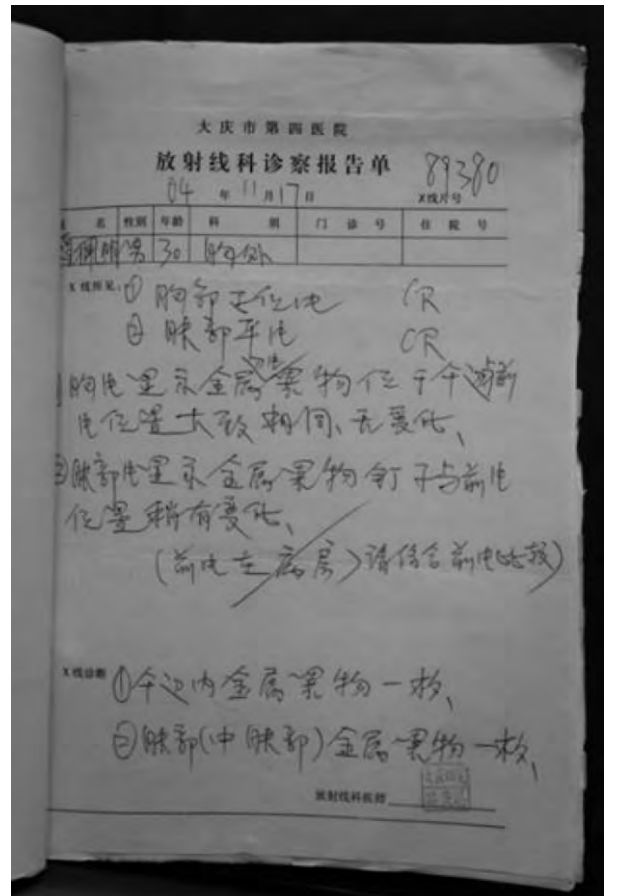 大庆市第四医院
放射线科诊察报告单
89380
04 年 11 月 17 日 X线片号
名 性别 年龄 科 别 门 诊 号 住 院 号
男 30 胸外
X线所见: ① 胸部正位片 CR
② 腹部平片 CR
胸片显示金属异物位于 前
片位置大致相同、无变化、
② 腹部片显示金属异物钉子与前片
位置稍有变化、
(前片在病房) 请结合前片比较)
X线诊断 ① 内金属异物一枚、
② 腹部(中腹部)金属异物一枚、
放射线科医师